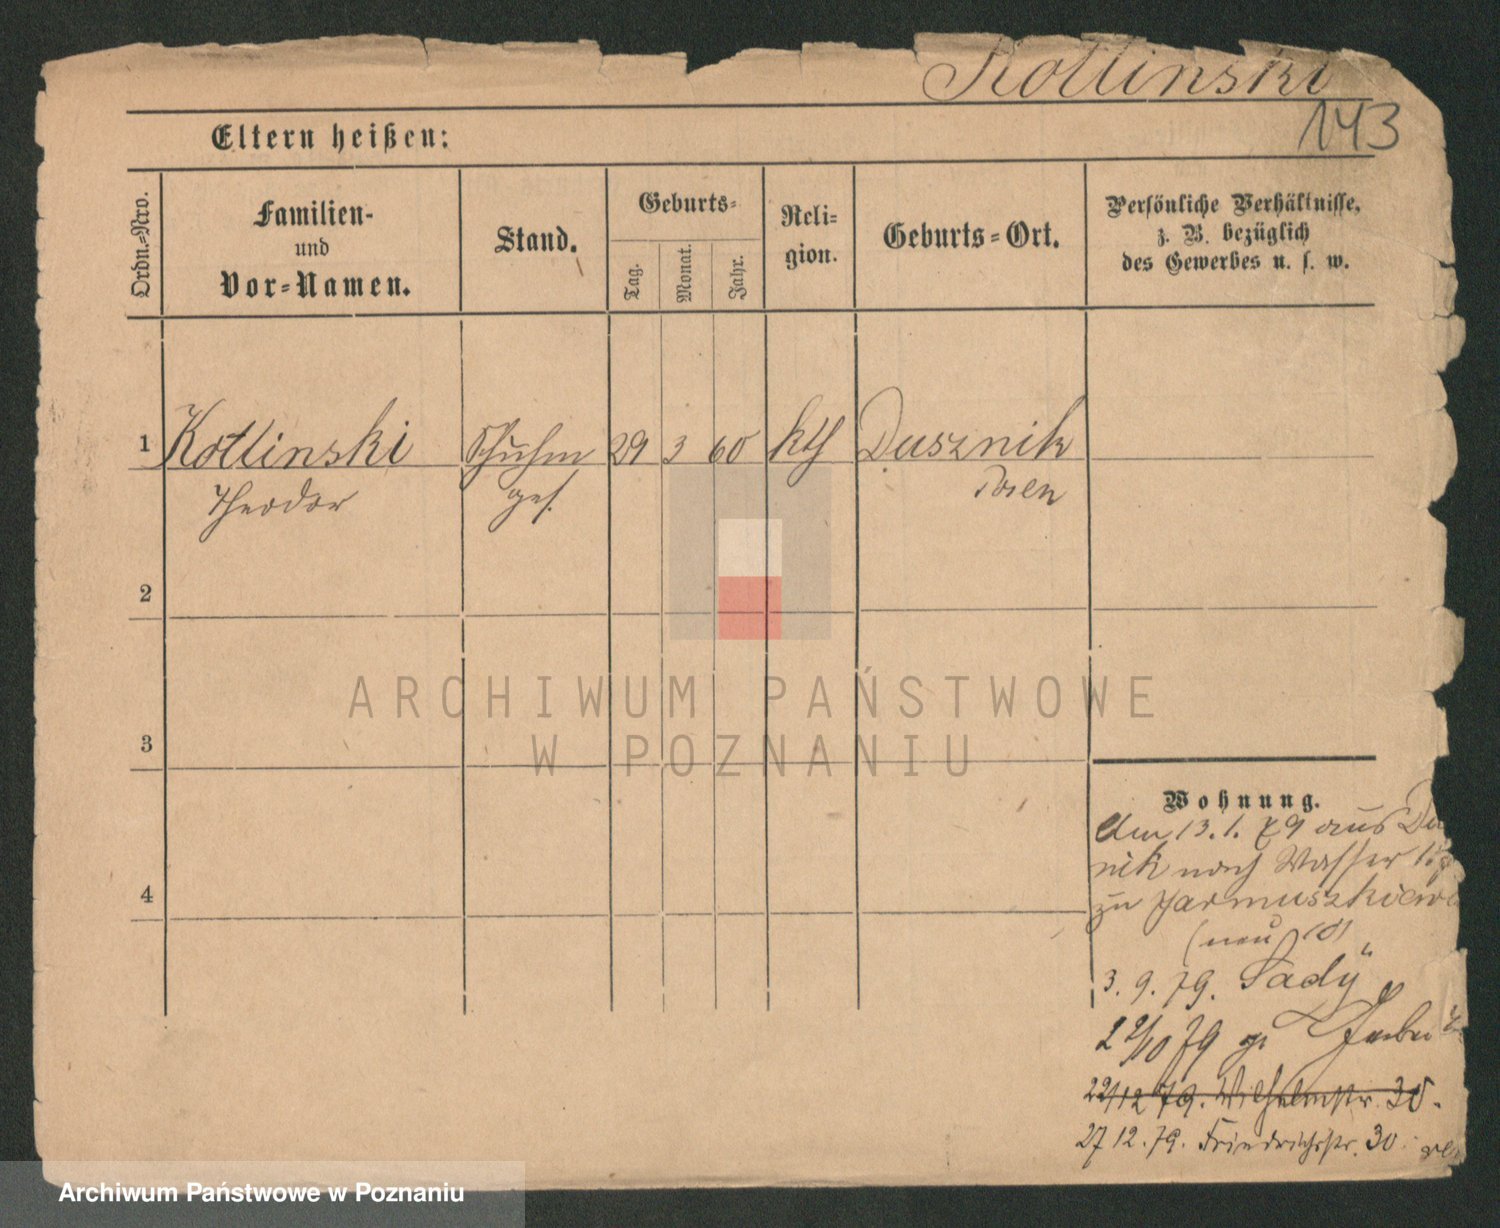 Kotlinski
143
Eltern heißen:
Ordn.=Nro.
Familien-
und
Vor=Namen.
Stand.
Geburts=
Tag.
Monat.
Jahr.
Reli=
gion.
Geburts=Ort.
Persönliche Verhältnisse,
z. B. bezüglich
des Gewerbes u. s. w.
1 Kotlinski Schuhm 29 3 60 kth Dusznik
Theodor ges. Posen
2
3
4
ARCHIWUM PAŃSTWOWE
W POZNANIU
Wohnung.
Am 13.1.79 aus Du
nik nach Wasser
zu Jarmuszkiew
(neu
3. 9. 79. Sady
79
22/12 79. Wilhelmstr. 30.
27 12. 79. Friedrichsstr. 30.
Archiwum Państwowe w Poznaniu